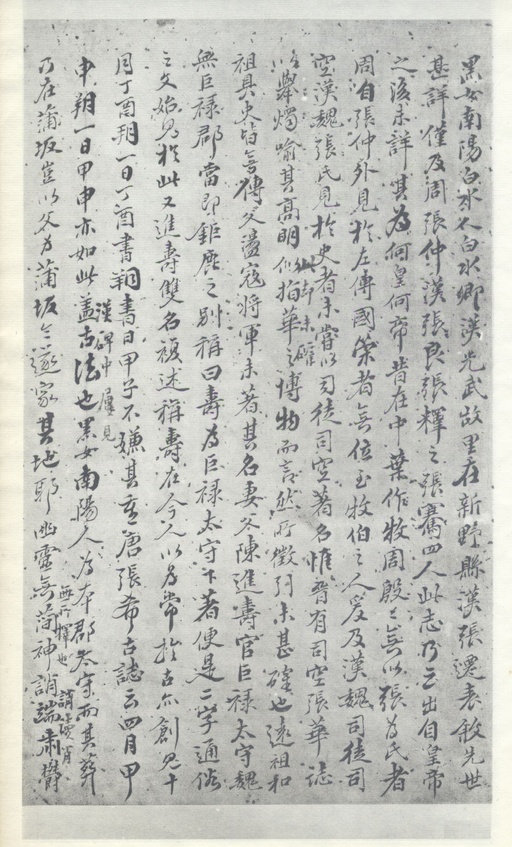 黑女南陽白水人白水鄉漢光武故里在新野縣漢張遷表敘先世
甚詳僅及周張仲漢張良張釋之張騫四人此志乃云出自皇帝
之後未詳其為何皇何帝昔在中葉作牧周殷〻無以張為氏者
周自張仲外見於左傳國策者無位至牧伯之人爰及漢魏司徒司
空漢魏張氏見於史者未嘗以司徒司空著名惟晉有司空張華誌
以舉燭喻其高明似指華之博物而言然所徵引未甚確也遠祖和
祖具史皆無傳父盪寇將軍未著其名妻父陳進壽官巨祿太守魏
無巨祿郡當即鉅鹿之別稱曰壽為巨祿太守下著便是二字通俗
之文始見於此又進壽雙名複述稱壽在今人以為常於古亦創見十
月丁酉朔一日丁酉書朔書日甲子不嫌其重唐張希古誌云四月甲
漢碑中屢見
申朔一日甲申亦如此蓋古法也黑女南陽人為本郡太守而其葬
乃在蒲坂豈以父為蒲坂令遂家其地耶幽靈無簡神誚端肅欝
無所擇也